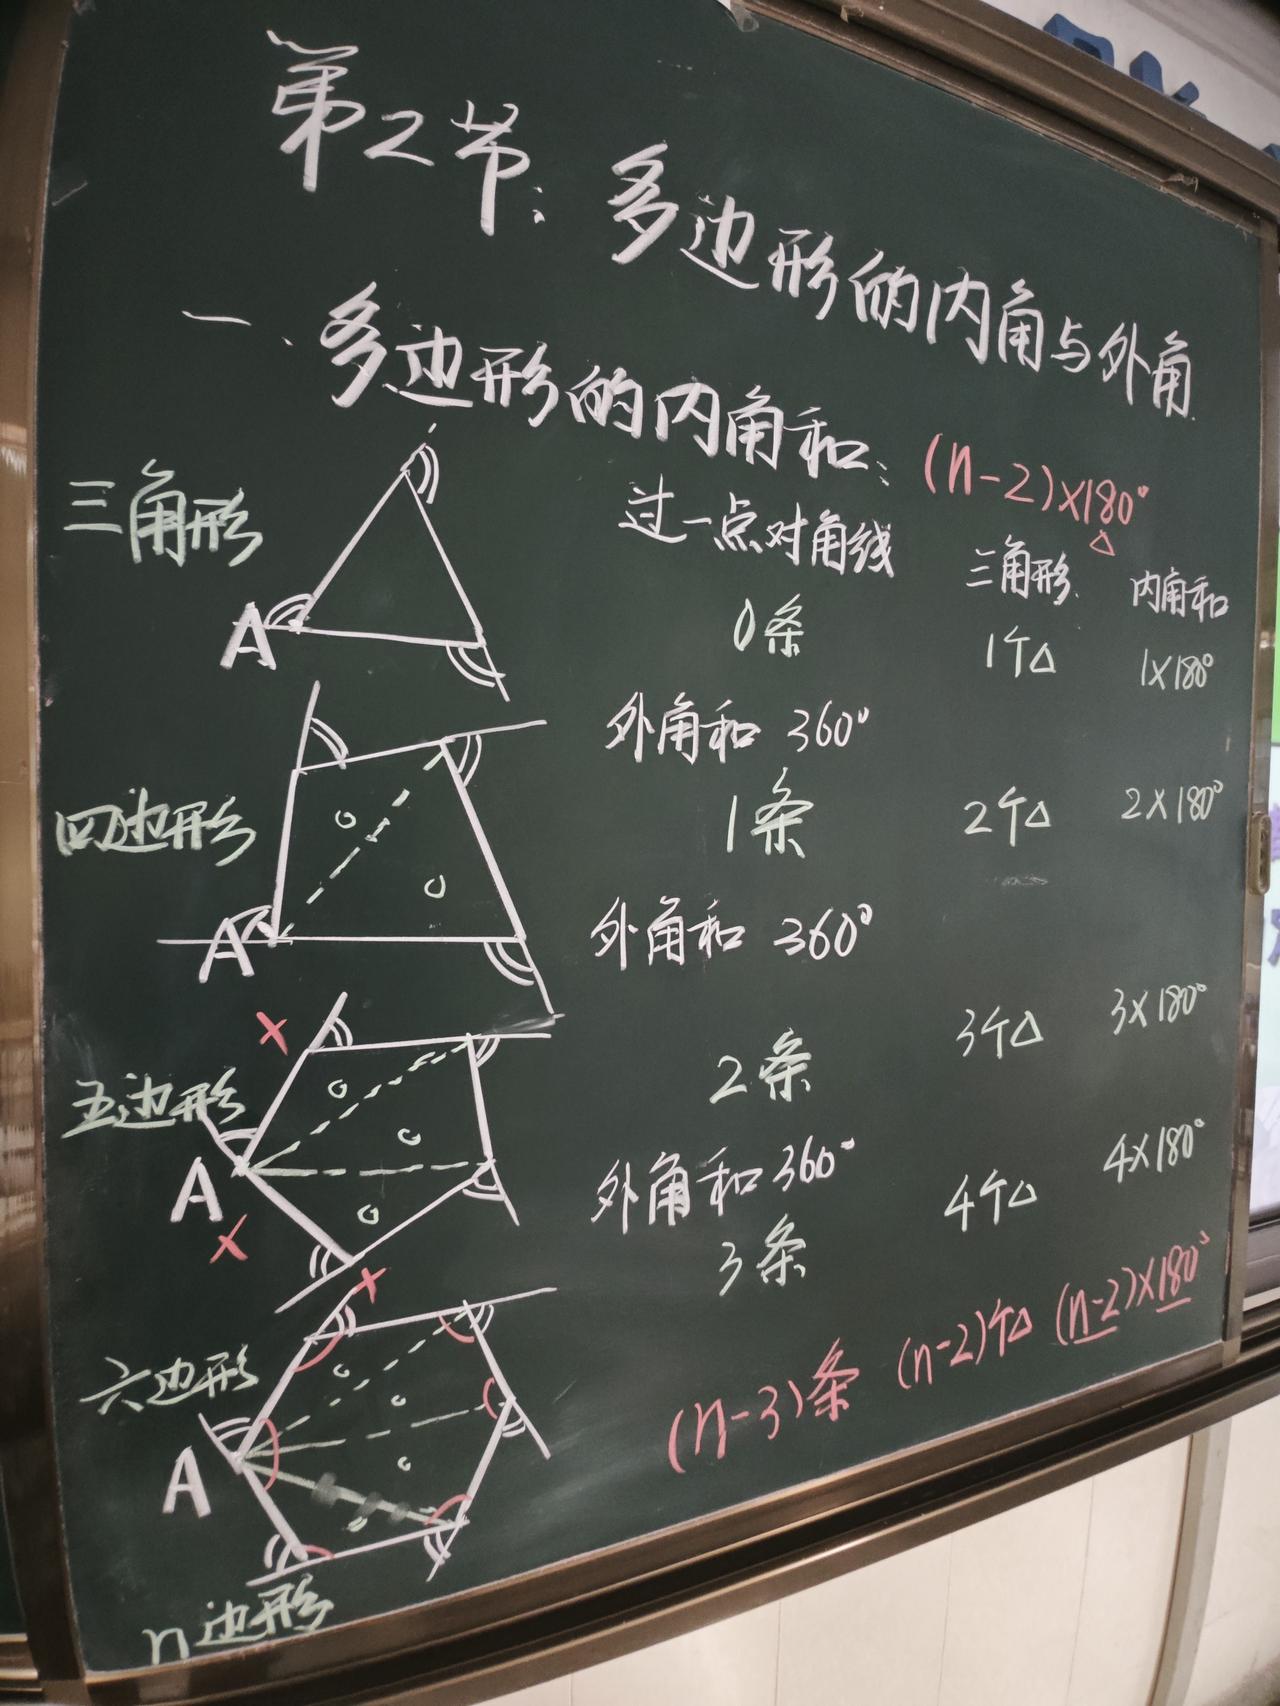 第2节:多边形的内角与外角
一、多边形的内角和:(n-2)×180°
△
过一点对角线 三角形 内角和
三角形 0条 1个△ 1×180°
A
外角和 360°
四边形 1条 2个△ 2×180°
A
外角和 360°
五边形 2条 3个△ 3×180°
A
外角和 360°
六边形 3条 4个△ 4×180°
A
n边形 (n-3)条 (n-2)个△ (n-2)×180°